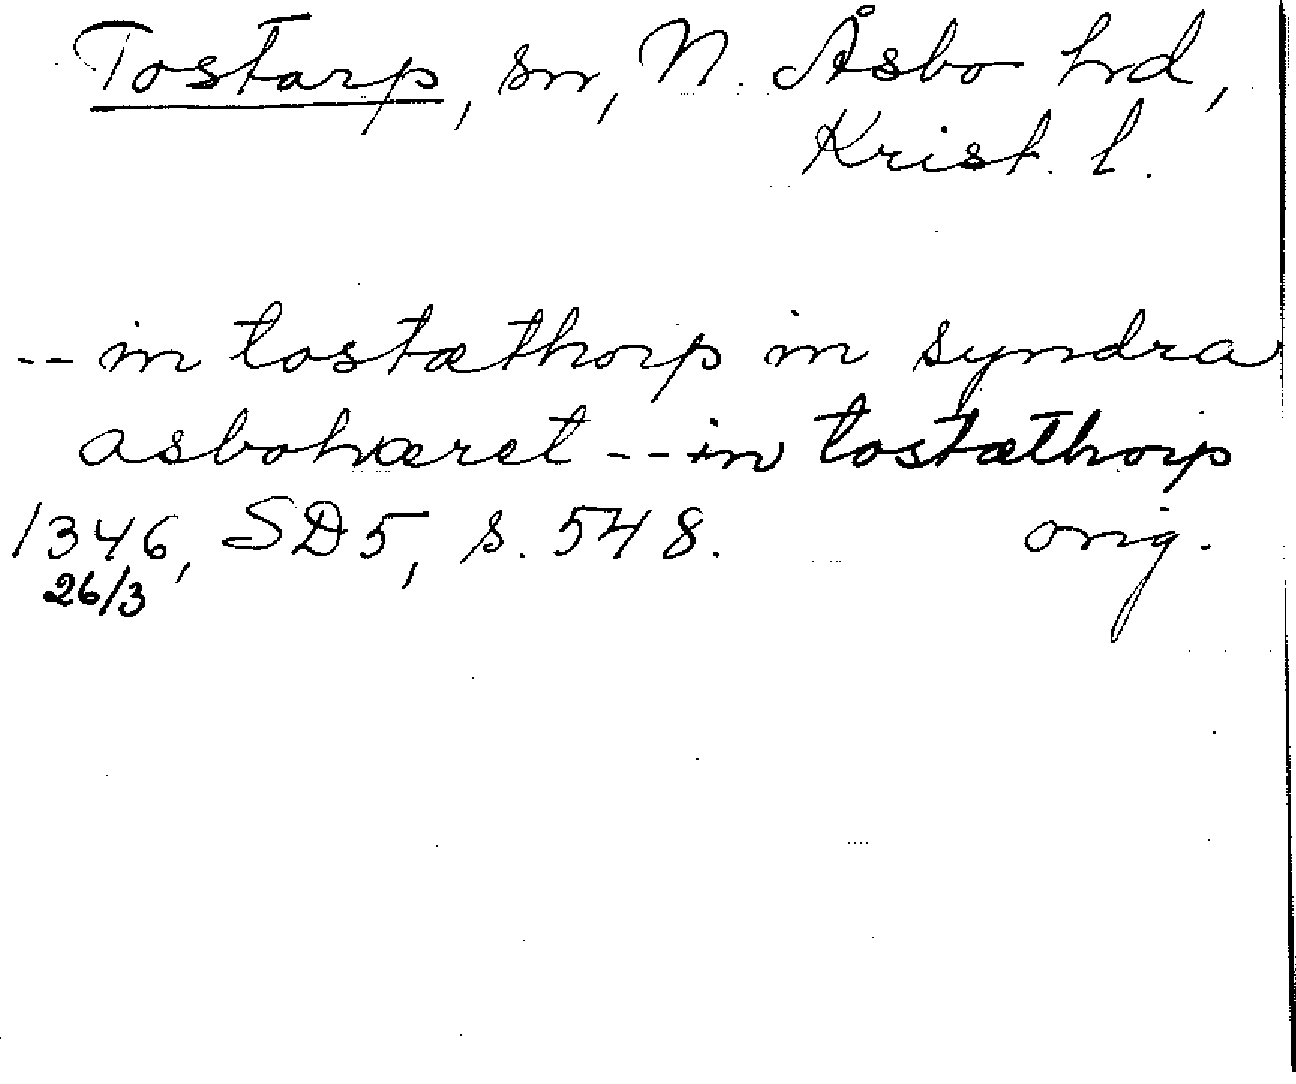 Tostarp, sn, N. Åsbo hrd,
Krist. l.
-- in tostæthorp in syndra
asbohæret -- in tostæthorp
1346, SD5, s. 548. orig.
26/3